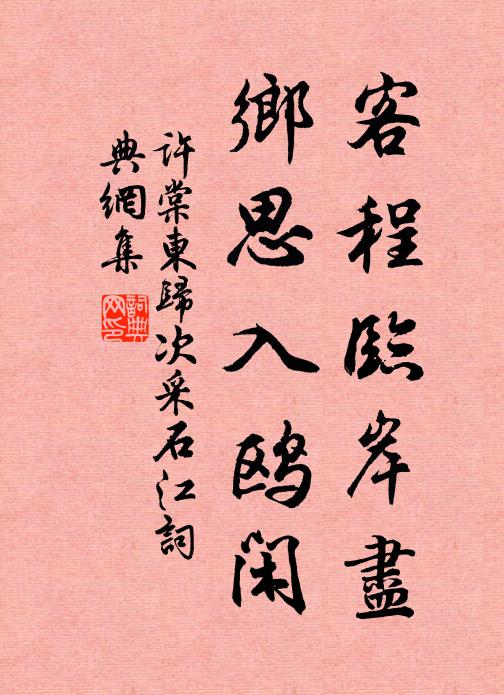 客程臨岸盡
鄉思入鷗閑
許棠東歸次采石江詞
典網集
詞典
网印